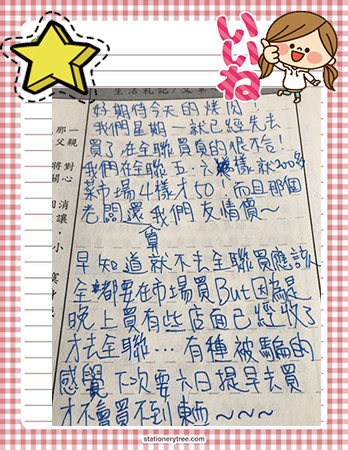 いいね
生活札記/文章
好期待今天的烤肉！
我們星期一就已經先去
買了在全聯買真的很不合！
我們在全聯五.六樣就300多
菜市場4樣才70！而且那個
老闆還賣我們友情價～
早知道就不去全聯買應該
全都要在市場買But因為是
晚上買有些店面已經收了
才去全聯…有種被騙的
感覺下次要六日提早去買
才不會買不到東西～～～
那一
父親
將對
關心
消
讓，
小
stationerytree.com